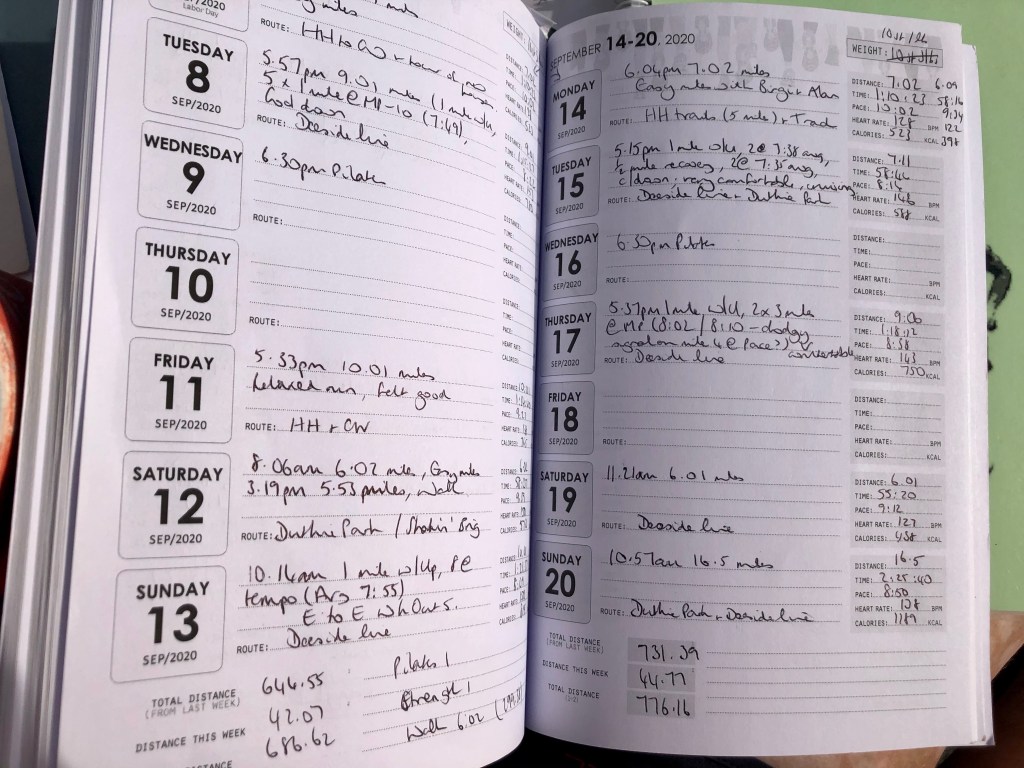 /2020
Labor Day
ROUTE: HH to
TUESDAY
8
SEP/2020
5.57pm 9.01 miles (1 mile w/u,
5 x 1 mile @ MP-10 (7:49),
Cool down
Deeside line
WEDNESDAY
9
SEP/2020
6.30pm Pilates
ROUTE:
THURSDAY
10
SEP/2020
ROUTE:
FRIDAY
11
SEP/2020
5.33pm 10.01 miles
Relaxed run, felt good
ROUTE: HH + CW
SATURDAY
12
SEP/2020
8.06am 6.02 miles, Easy miles
3.19pm 5.53 miles, Walk
ROUTE: Duthie Park / Shakin' Brig
SUNDAY
13
SEP/2020
10.14am 1 mile w/up, PE
tempo (Avg 7:55)
E to E Wk Out 5.
ROUTE: Deeside line
TOTAL DISTANCE
(FROM LAST WEEK)
644.55
DISTANCE THIS WEEK
42.07
686.62
Pilates 1
Strength 1
Walk 6.02
SEPTEMBER 14-20, 2020
WEIGHT:
MONDAY
14
SEP/2020
6.04pm 7.02 miles
Easy miles with Birgit + Alan
ROUTE: HH trails (5 mile) + Track
DISTANCE: 7.02 6.09
TIME: 1:10:23 58:16
PACE: 10:02 9:34
HEART RATE: 127 BPM 122
CALORIES: 523 KCAL 398
TUESDAY
15
SEP/2020
5.15pm 1 mile w/u, 2 @ 7:38 avg,
1/2 mile recovery, 2 @ 7:35 avg,
c/down: very comfortable, cruising
ROUTE: Deeside line + Duthie Park
DISTANCE: 7.11
TIME: 58:44
PACE: 8:16
HEART RATE: 146 BPM
CALORIES: 588 KCAL
WEDNESDAY
16
SEP/2020
6.30pm Pilates
ROUTE:
DISTANCE:
TIME:
PACE:
HEART RATE: BPM
CALORIES: KCAL
THURSDAY
17
SEP/2020
5.37pm 1 mile w/u, 2 x 3 miles
@ MP (8:02 / 8:10 - dodgy
signal on mile 4 @ pace?)
comfortable
ROUTE: Deeside line
DISTANCE: 9.00
TIME: 1:18:12
PACE: 8:38
HEART RATE: 143 BPM
CALORIES: 750 KCAL
FRIDAY
18
SEP/2020
ROUTE:
DISTANCE:
TIME:
PACE:
HEART RATE: BPM
CALORIES: KCAL
SATURDAY
19
SEP/2020
11.21am 6.01 miles
ROUTE: Deeside line
DISTANCE: 6.01
TIME: 55:20
PACE: 9:12
HEART RATE: 127 BPM
CALORIES: 438 KCAL
SUNDAY
20
SEP/2020
10.57am 16.5 miles
ROUTE: Duthie Park + Deeside line
DISTANCE: 16.5
TIME: 2:25:40
PACE: 8:50
HEART RATE: BPM
CALORIES: 1189 KCAL
TOTAL DISTANCE
(FROM LAST WEEK)
731.39
DISTANCE THIS WEEK
44.77
TOTAL DISTANCE
776.16